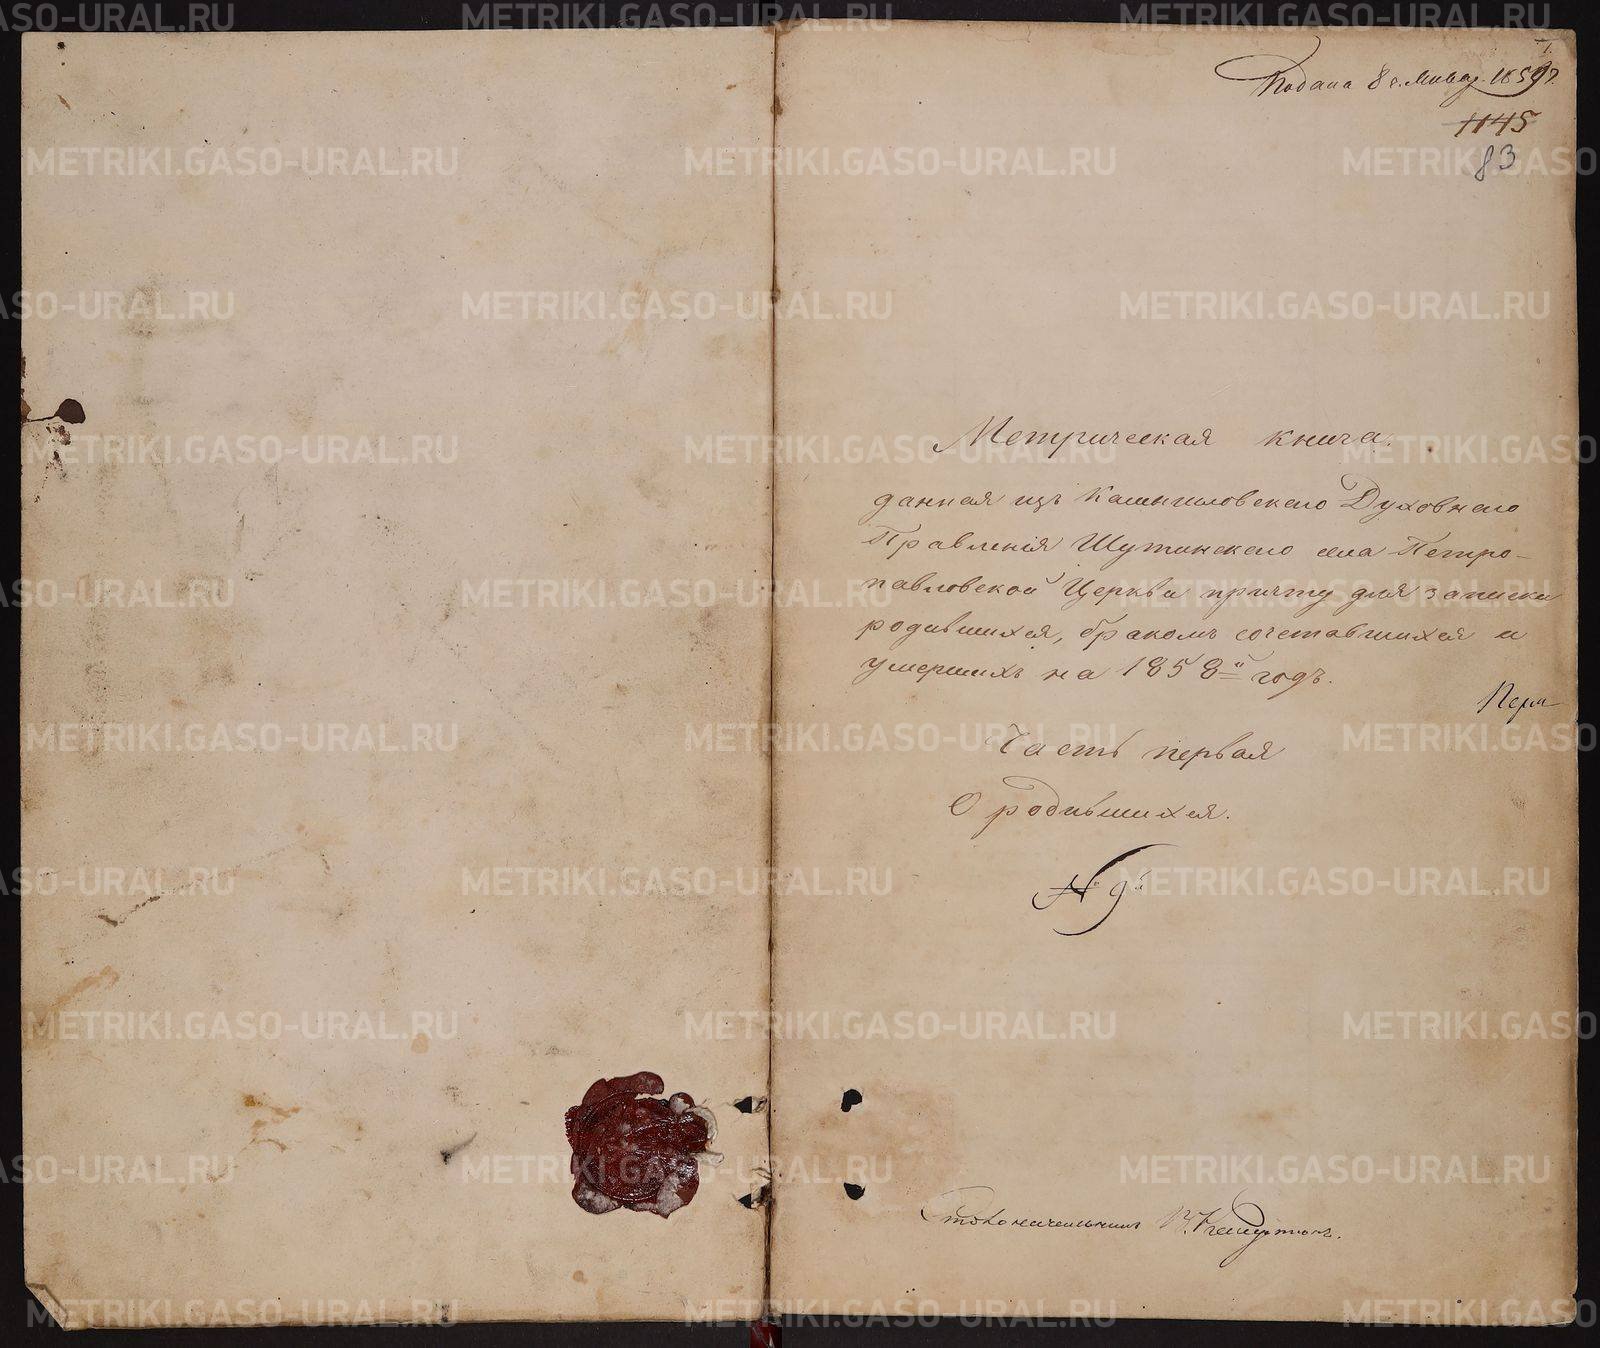 1.
Подана 8 г. Января 1859 г.
1145
83
Метрическая книга
данная изъ Камышловскаго Духовнаго
Правленія Шутинскаго села Петро-
павловской Церкви причту для записки
родившихся, бракомъ сочетавшихся и
умершихъ на 1858й годъ.
Перм
Часть первая
О родившихся.
№ 9й
Столоначальникъ
METRIKI.GASO-URAL.RU